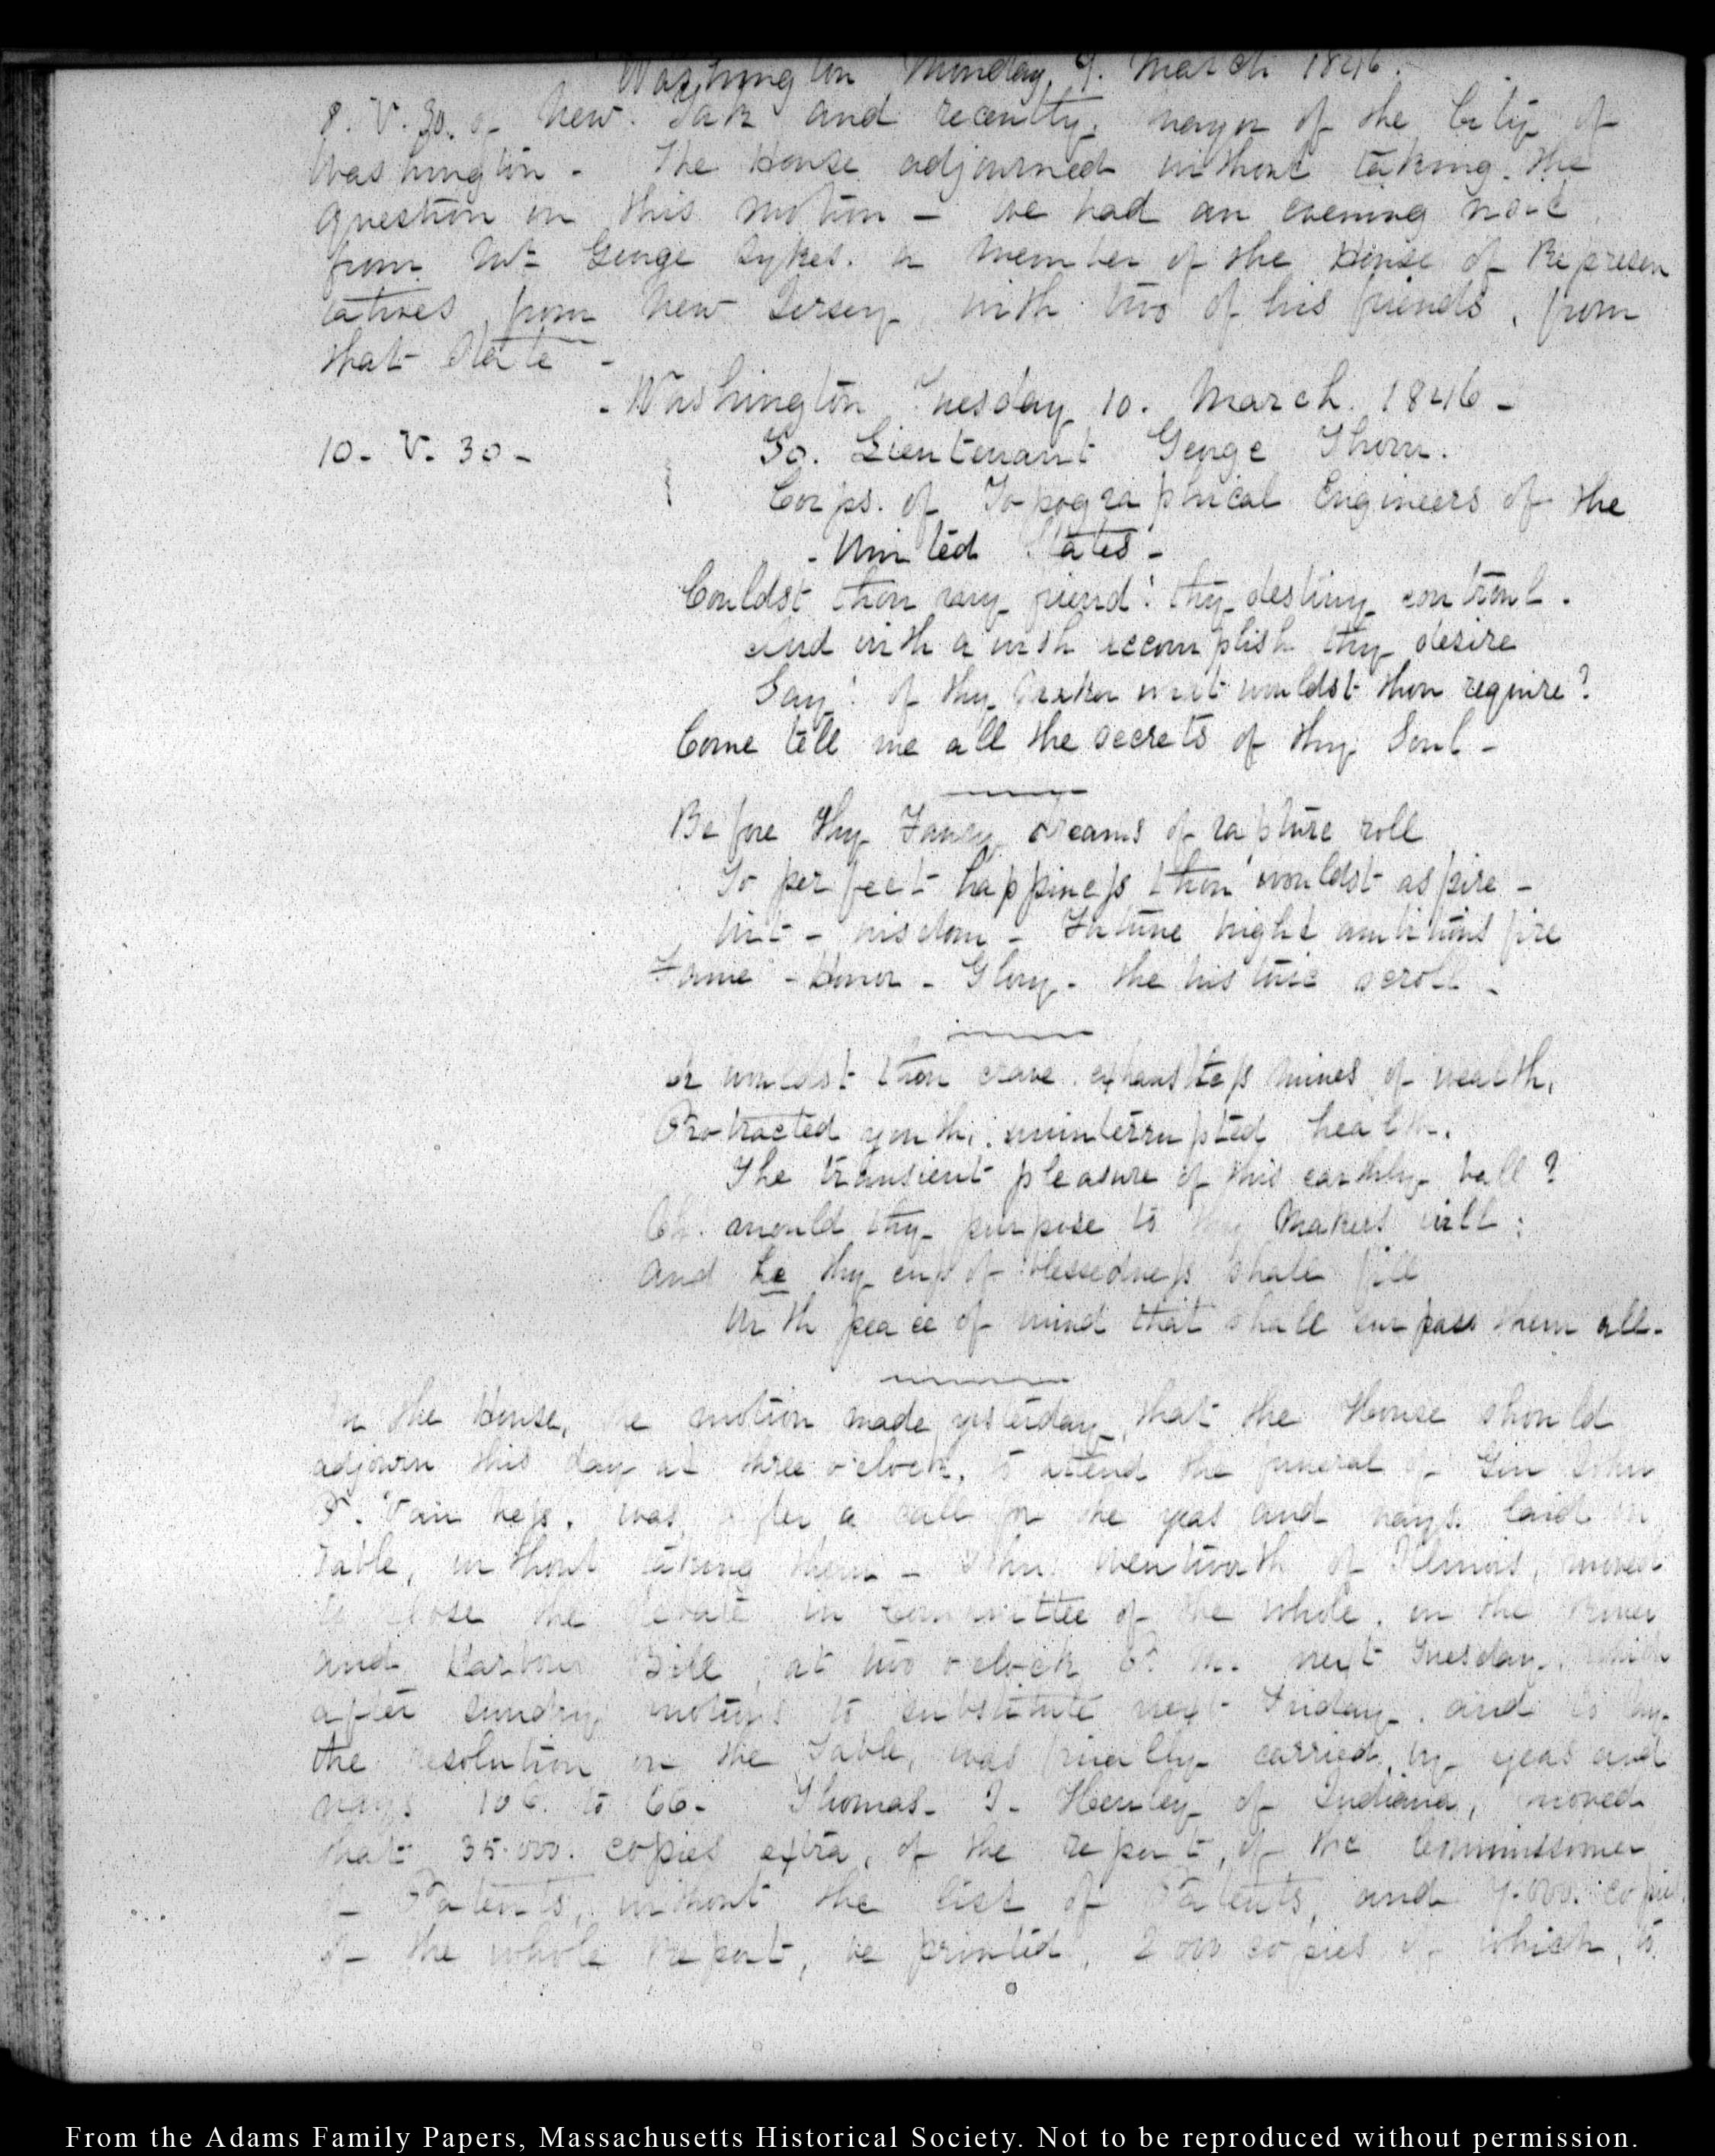 Washington Monday, 9. March 1846.
9. V. 30. of New York and recently, mayor of the City of
Washington - The House adjourned without taking the
question on this motion - We had an evening visit
from Mr George Sykes. a member of the House of Represen
tatives from New Jersey with two of his friends, from
that State -
- Washington Tuesday 10. March. 1846 -
10. V. 30 -
To. Lieutenant George Thom.
Corps. of Topographical Engineers of the
- United States -
Couldst thou my friend! thy destiny controul.
And with a wish accomplish thy desire
Say! of thy Maker what wouldst thou require?
Come tell me all the secrets of thy Soul -
Before thy Fancy dreams of rapture roll
To perfect happiness thou wouldst aspire -
Wit - wisdom - Fortune bright ambitions fire
Fame - Honor - Glory - the historic scroll -
Or wouldst thou crave exhaustless mines of wealth,
Protracted youth, uninterrupted health.
The transient pleasure of this earthly ball?
Oh. mould thy purpose to thy Makers will:
And he thy cup of blessedness shall fill
With peace of mind that shall surpass them all.
In the House, the motion made yesterday, that the House should
adjourn this day at three o'clock, to attend the funeral of Gen John
P. Van Ness. was, after a call for the yeas and nays. laid on
Table, without taking them - John Wentworth of Illinois, moved
to close the debate in Committee of the whole. on the River
and Harbour Bill, at two o'clock P. M. next Tuesday, which
after sundry motions to substitute next Friday. and to lay
the resolution on the Table, was finally carried, by yeas and
nays 106. to 66. Thomas. J. Henley of Indiana, moved
that 35.000. copies extra, of the report, of the Commissioner
of Patents, without the list of Patents, and copies
of the whole Report, be printed, 2000 copies of which, to
From the Adams Family Papers, Massachusetts Historical Society. Not to be reproduced without permission.